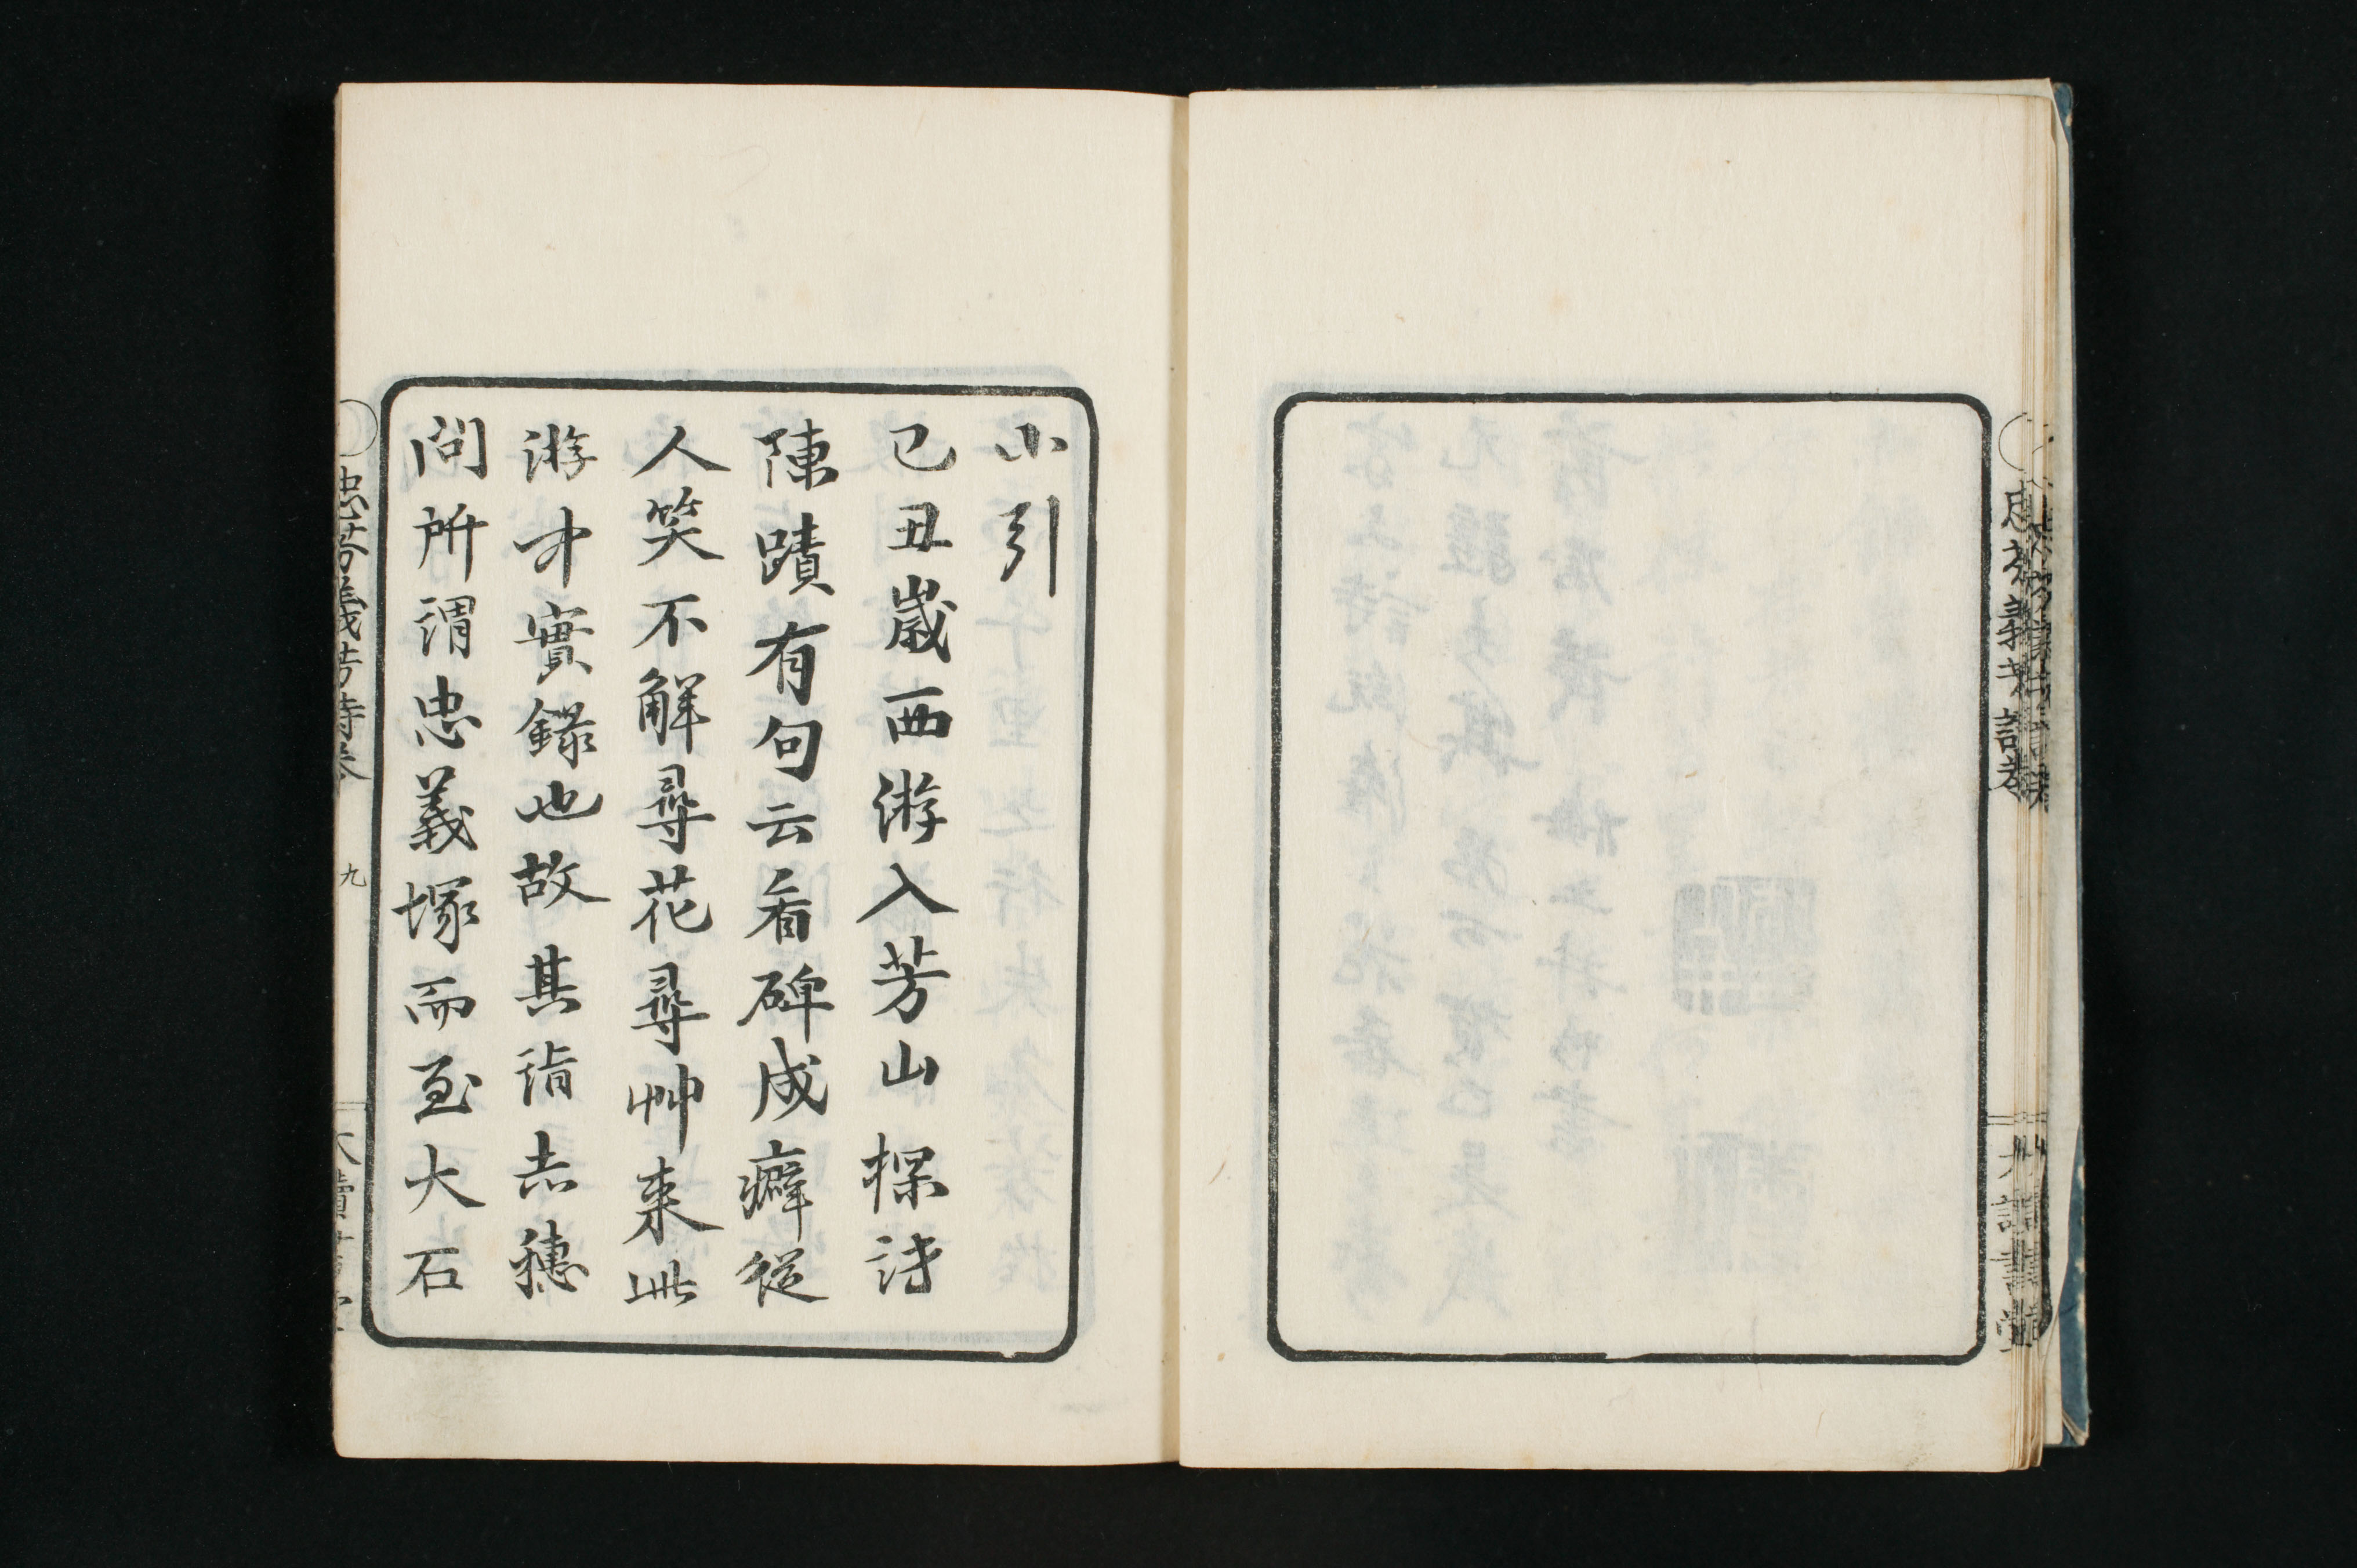 小引
己丑歲西游入芳山探詩
陳蹟有句云看碑成癖從
人笑不解尋花尋艸来此
游中實錄也故其詣志穗
問所謂忠義塚而至大石
忠芳義芳詩巻
九